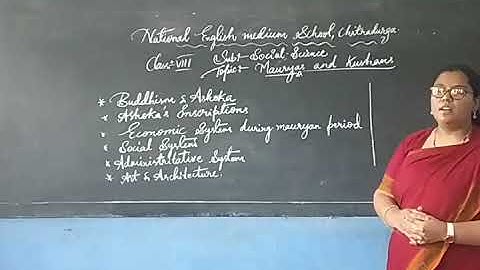 National English medium School, Chitradurga
Class:- VIII Sub:- Social Science
Topic:- Mauryas and Kushans
* Buddhism & Ashoka
* Ashoka's Inscriptions
* Economic System during mauryan period
* Social System
* Administritative System
* Art & Architecture.